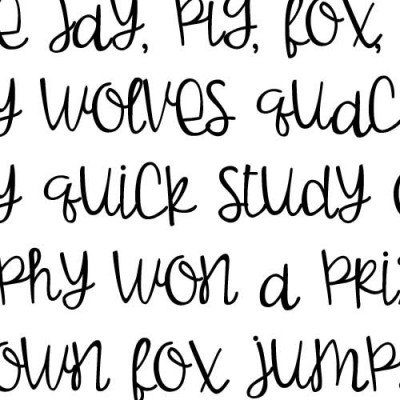 e jay, pig, fox,
y wolves quac
y quick study
phy won a priz
own fox jumps